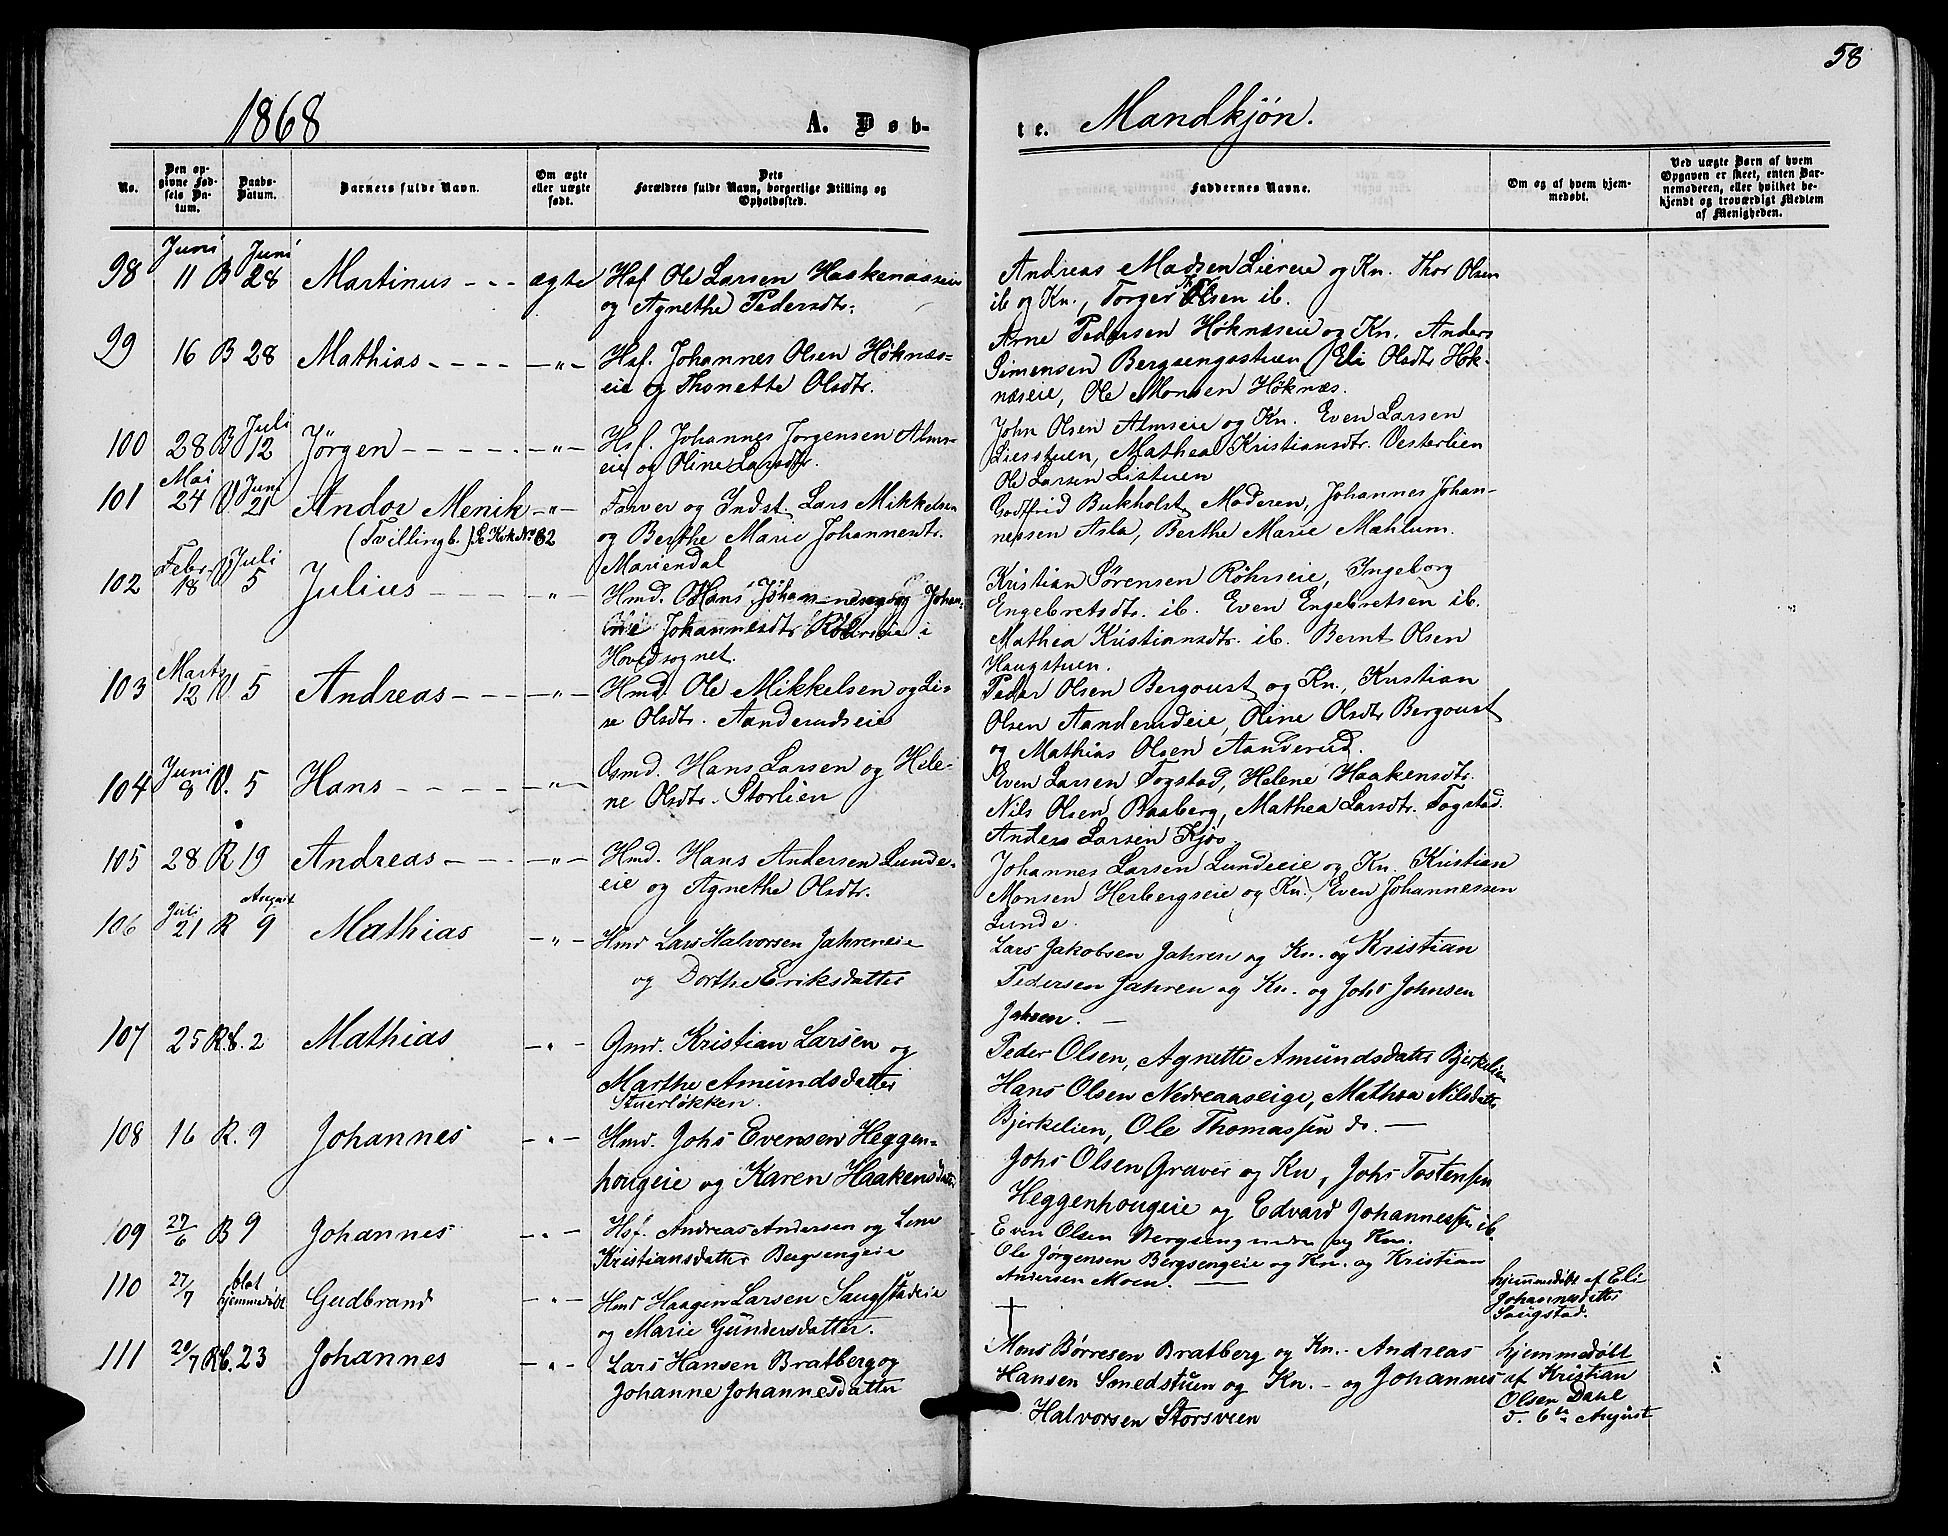 58
1868
A. Døb-
te. Mandkjøn.
No.
Den op-
givne Fød-
sels Da-
tum.
Daabs-
Datum.
Barnets fulde Navn.
Om ægte
eller uægte
født.
Dets
Forældres fulde Navn, borgerlige Stilling og
Opholdssted.
Faddernes Navne.
Om og af hvem hjem-
medøbt.
Ved uægte Børn af hvem
Opgaven er skeet, enten Bar-
nemoderen, eller hvilket be-
kjendt og troværdigt Medlem
af Menigheden.
Juni Juni
98 11 B 28 Martinus - - - ægte Hsf. Ole Larsen Haakenaaseie
og Agnethe Pedersdtr.
Andreas Madsen Liereie og Kn. Thor Olsen
ib og Kn., Torger Olsen ib.
99 16 B 28 Mathias - - - - -"- Hsf. Johannes Olsen Höknæs-
eie og Thonette Olsdtr.
Arne Pedersen Höknæseie og Kn. Anders
Simensen Bergsengstuen, Eli Olsdtr Hök-
næseie, Ole Monsen Höknæs.
Juli
100 28 B 12 Jörgen - - - - - -"- Hsf. Johannes Jorgensen Alms-
eie og Oline Larsdtr.
John Olsen Almseie og Kn. Even Larsen
Liesstuen, Mathea Kristiansdtr. Vesterlien
Ole Larsen Listuen
Mai Juni
101 24 V. 21 Andor Menik -"- Farver og Indst. Lars Mikkelsen
(Tvillingb.) Se Kvk. No 82 og Berthe Marie Johannesdtr.
Mariendal
Godtfrid Bukholst, Moderen, Johannes Johan-
nessen Asla, Berthe Marie Mæhlum.
Febr. Juli
102 18 V 5 Julius - - - - " - Hmd. Hans Johannesen og Johan-
ne Johannesdtr Röhrseie i
Hovedsognet.
Kristian Sörensen Röhrseie, Ingeborg
Engebretsdtr. ib. Even Engebretsen ib.
Mathea Kristiansdtr. ib. Bernt Olsen
Haugstuen.
Marts
103 12 V. 5 Andreas - - - -"- Hmd. Ole Mikkelsen og Li-
se Olsdtr. Aanderudseie
Peder Olsen Bergoust og Kn., Kristian
Olsen Aanderudeie, Oline Olsdtr Bergoust
og Mathias Olsen Aanderud.
Juni
104 8 V. 5 Hans - - - - - -"- Gmd. Hans Larsen og Hele-
ne Olsdtr. Storlien
Even Larsen Togstad, Helene Haakensdtr.
Nils Olsen Baaberg, Mathea Larsdtr. Togstad
Anders Larsen Kjos.
105 28 R 19 Andreas - - - -"- Hmd. Hans Andersen Lunde-
eie og Agnethe Olsdtr.
Johannes Larsen Lundeeie og Kn. Kristian
Monsen Herbergseie og Kn., Even Johannessen
Lunde.
Juli August
106 21 R 9 Mathias -"- Hmd Lars Halvorsen Jahreneie
og Dorthe Eriksdatter
Lars Jakobsen Jahren og Kn. og Kristian
Pedersen Jahren og Kn. og Johs Johnsen
Jahren. -
107 25 R.C. 2 Mathias -"- Gmd. Kristian Larsen og
Marthe Amundsdatter
Stuerlökken.
Peder Olsen, Agnette Amundsdatter Bjerkelien
Hans Olsen Nedreaaseige, Mathea Nilsdatter
Bjerkelien, Ole Thomassen do. -
108 16 R. 9 Johannes -"- Hmd. Johs Evensen Heggen-
hougeie og Karen Haakensdatter
Johs Olsen Graver og Kn, Johs Tostensen
Heggenhougeie og Edvard Johannessen ib.
109 27/6 B 9 Johannes -"- Hsf. Andreas Andersen og Lene
Kristiansdatter Bergsengeie
Even Olsen Bergseng nedre og Kn.
Ole Jørgensen Bergsengeie og Kn. og Kristian
Andersen Moen. -
110 27/7 blot
hjemmedöbt Gudbrand -"- Hmd Haagen Larsen Saugstadeie
og Marie Gundersdatter.
hjemmedöbt af Eli
Johannesdatter
Saugstad.
111 20/7 R.C. 23 Johannes -"- Lars Hansen Bratberg og
Johanne Johannesdatter
Mons Börresen Bratberg og Kn. - Andreas
Hansen Smedstuen og Kn. - og Johannes
Halvorsen Storsveen
hjemmedöbt
af Kristian
Olsen Dahl
d. 6te August